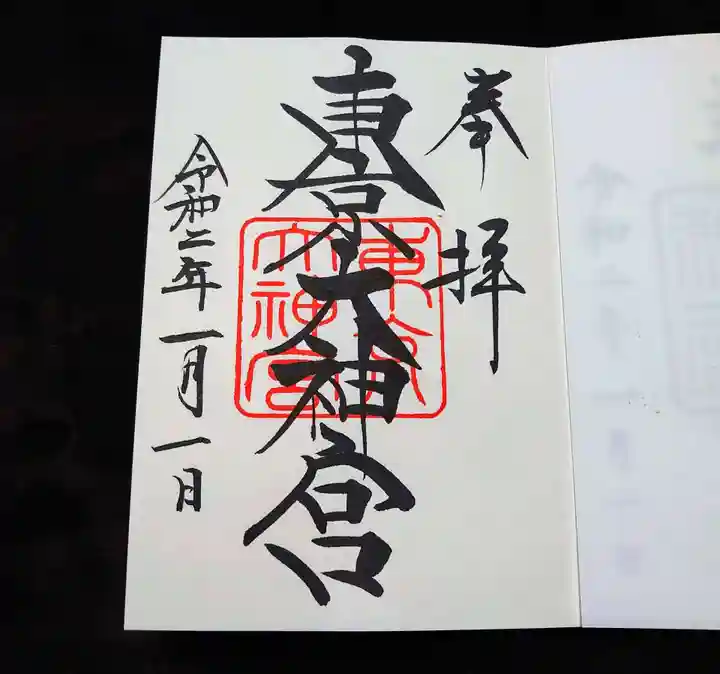 奉拝
東京大神宮
東京
大神宮
令和二年一月一日